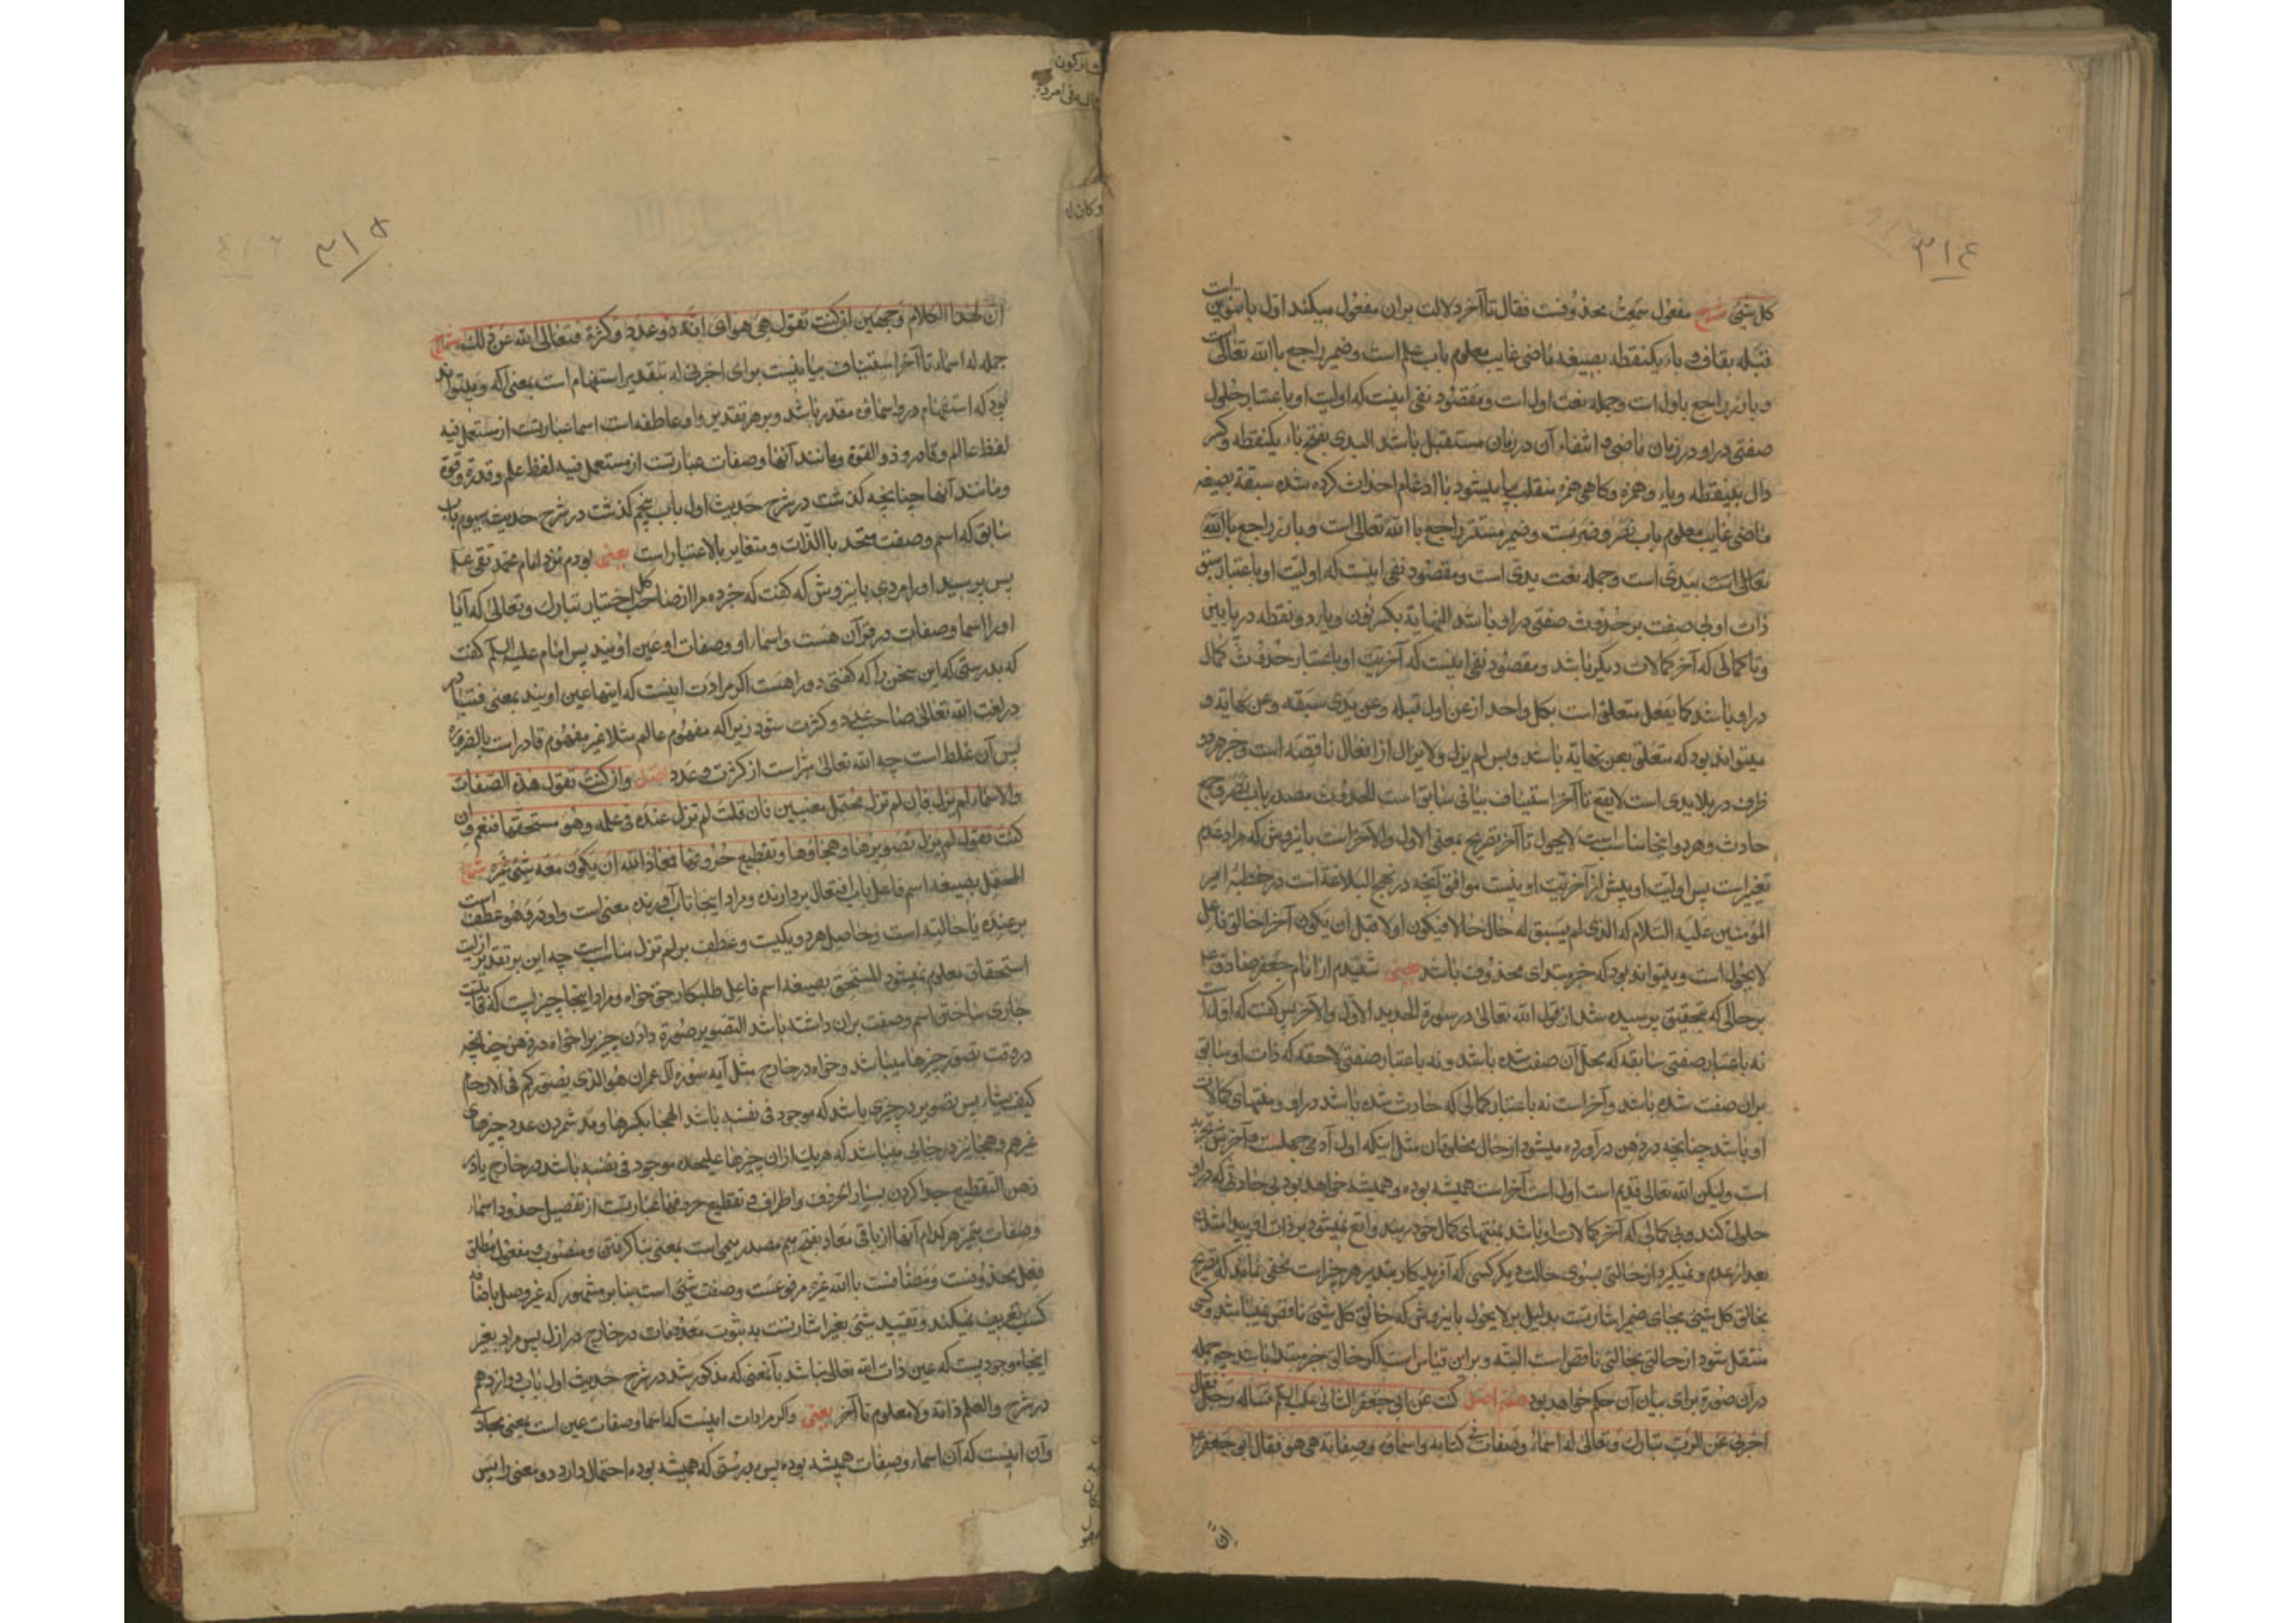 ۳۱۴
كل شیئ شرح مفعول سمعت محذوفست فقال تا آخر دلالت بران مفعول میکند اول با تنوین است
قبله بقاف و باء یکنقطه بصیغه ماضی غایب معلوم باب علم است و ضمیر راجع با الله تعالی است
و بارز راجع باول است و جمله نعت اول است و مقصود نفی اینست که اولیت او باعتبار حلول
صفتی در او در زمان ماضی و انتفاء آن در زمان مستقبل باشد البدی بفتح باء یکنقطه و کسر
دال بینقطه و یاء و همزه و کاهی همزه منقلب بیا میشود با ادغام احداث کرده شده سبقه بصیغه
ماضی غایب معلوم باب نصر و ضربست و ضمیر مستتر راجع با الله تعالی است و بارز راجع با الله
تعالی است بیدی است و جمله نعت بدی است و مقصود نفی اینست که اولیت او باعتبار سبق
ذات او بی صفت بر حدوث صفتی در او باشد النهایة بکسر نون و یاء دو نقطه در پایین
و تا کمالی که آخر کمالات دیگر باشد و مقصود نفی اینست که آخریت او باعتبار حدوث کمال
در او باشد کما یفعل متعلق است بکل واحد از عن اول قبله و عن بدی سبقه و عن نهایة و
میتواند بود که متعلق بعن نهایة باشد و بس لم یزل و لا یزال از افعال ناقصه است و خبر هر دو
ظرف در بلا بدی است لا یقع تا آخر استیناف بیانی سابق است الحدوث مصدر باب نصر و جمع
حادث و هر دو اینجا مناسب است لا یحول تا آخر تفریع بمعنی الاول و الآخر است باینروش که مراد عدم
تغیر است پس اولیت او پیش از آخریت او نیست موافق آنچه در نهج البلاغة است در خطبه امیر
المؤمنین علیه السلام که الذی لم یسبق له حال حالا فیکون اولا قبل ان یکون آخرا خالق فاعل
لا یحول است و میتواند بود که خبر مبتدای محذوف باشد یعنی شنیدم از امام جعفر صادق ع
بر حالی که بتحقیق پرسیده شد از قول الله تعالی در سورة الحدید الاول و الآخر پس گفت که اول است
نه باعتبار صفتی سابقه که محل آن صفت شده باشد و نه باعتبار صفتی لاحقه که ذات او سابق
بران صفت شده باشد و آخر است نه باعتبار کمالی که حادث شده باشد در او و منتهای کمالات
او باشد چنانچه در ذهن در آورده میشود از حال مخلوقان مثل اینکه اول آدمی جهلست و آخرش تجربه
است ولیکن الله تعالی قدیم است اول است آخر است همیشه بوده و همیشه خواهد بود بی حادثی که در او
حلول کند و بی کمالی که آخر کمالات او باشد بمنتهای کمال خود رسد واقع نمیشود بر ذات او پیدا شدن
بعد از عدم و نمیگردد از حالتی بسوی حالت دیگر کسی که آفریدکار بتدبیر هر چیز است مخفی نماند که تصریح
بخالق کل شیئ بجای ضمیر اشارتست بدلیل بر لا یحول باینروش که خالق کل شیئ ناقص نمیباشد و کسی
منتقل شود از حالتی بحالتی ناقص است البته و بر این قیاس است اکر خالق خبر مبتدا باشد چه جمله
در آن صورة برای بیان آن حکم خواهد بود هفتم اصل کنت عن ابی جعفر الثانی علیه السلام فساله رجل فقال
اخبرنی عن الرب تبارک و تعالی له اسماء و صفات فی کتابه و اسمائه و صفاته هی هو فقال ابو جعفر ع
ان
۳۱۵
ان لهذا الکلام وجهین ان کنت تقول هی هو ای انه ذو عدد و کثرة فتعالی الله عن ذلک شرح
جمله له اسماء تا آخر استیناف بیانیست برای اخبرنی له بتقدیر استفهام است بمعنی أله و میتواند
بود که استفهام در و اسمائه مقدر باشد و بر هر تقدیر واو عاطفه است اسما عبارتست از مستعمل فیه
لفظ عالم و قادر و ذو القوة و مانند آنها و صفات عبارتست از مستعمل فیه لفظ علم و قدرة و قوة
و مانند آنها چنانچه گذشت در شرح حدیث اول باب پنجم گذشت در شرح حدیث سیوم باب
سابق که اسم و صفت متحد با الذات و متغایر بالاعتبار است یعنی بودم نزد امام محمد تقی علیه
پس پرسید او را مردی باینروش که گفت که خبر ده مرا از صاحب کل اختیار تبارک و تعالی که آیا
او را اسما و صفات در قرآن هست و اسماء او و صفات او عین اویند پس امام علیه السلام گفت
که بدرستی که این سخن را که گفتی دو راهست اکر مرادت اینست که اینها عین اویند بمعنی
در لغت الله تعالی صاحب عدد و کثرت شود زیرا که مفهوم عالم مثلا غیر مفهوم قادر است بالضروره
پس آن غلط است چه الله تعالی مبراست از کثرت و عدد اصل و ان کنت تقول هذه الصفات
و الاسماء لم یزل فان لم تزل محتمل معنیین فان قلت لم تزل عنده فی علمه و هو مستحقها فنعم و ان
کنت تقول لم یزل تصویرها و هجاؤها و تقطیع حروفها فمعاذ الله ان یکون معه شیئ غیره شرح
بصیغه اسم فاعل باب افتعال بردارنده و مراد اینجا تاب آورنده معنی است واو در و هو عطف است
بر عنده یا حالیه است و حاصل هر دو یکیست و عطف بر لم تزل مناسب است چه این بر تقدیر ازلیت
استحقاق معلوم نمیشود المستحق بصیغه اسم فاعل طلبکار حق خواه و مراد اینجا چیزیست که قابلیت
جاری ساختن اسم و صفت بران داشته باشد التصویر صورة دادن چیزیرا خواه در ذهن چنانچه
در وقت تصور چیزها میباشد و خواه در خارج مثل آیه سوره آل عمران هو الذی یصورکم فی الارحام
کیف یشاء پس تصویر در چیزی باشد که موجود فی نفسه باشد الهجا بکسر ها و مد شمردن عدد چیزهای
غیر هم و هجا نیز در جائی میباشد که هر یک از آن چیزها علیحده موجود فی نفسه باشد در خارج یا در
ذهن التقطیع جدا کردن بسیار اطراف و تقطیع حروفها عبارتست از تفصیل حدود اسماء
و صفات بتمیز هر کدام آنها از باقی معاذ بفتح میم مصدر میمی است بمعنی پناه گرفتن و منصوب و مفعول مطلق
فعل محذوفست و مضافست با الله غیره مرفوعست و صفت شیئ است بنابر مشهور که غیر و مثل باضافه
کسب تعریف نمیکند و تقیید شیئ بغیر اشارتست به ثبوت معدومات در خارج در ازل پس مراد بغیر
اینجا موجودیست که عین ذات الله تعالی نباشد بآنمعنی که مذکور شد در شرح حدیث اول باب دوازدهم
در شرح و العلم ذاته و لا معلوم تا آخر یعنی و اکر مرادت اینست که اسما و صفات عین است بمعنی مجازی
و آن اینست که آن اسماء و صفات همیشه بوده پس بدرستی که همیشه بوده احتمال دارد دو معنی را پس